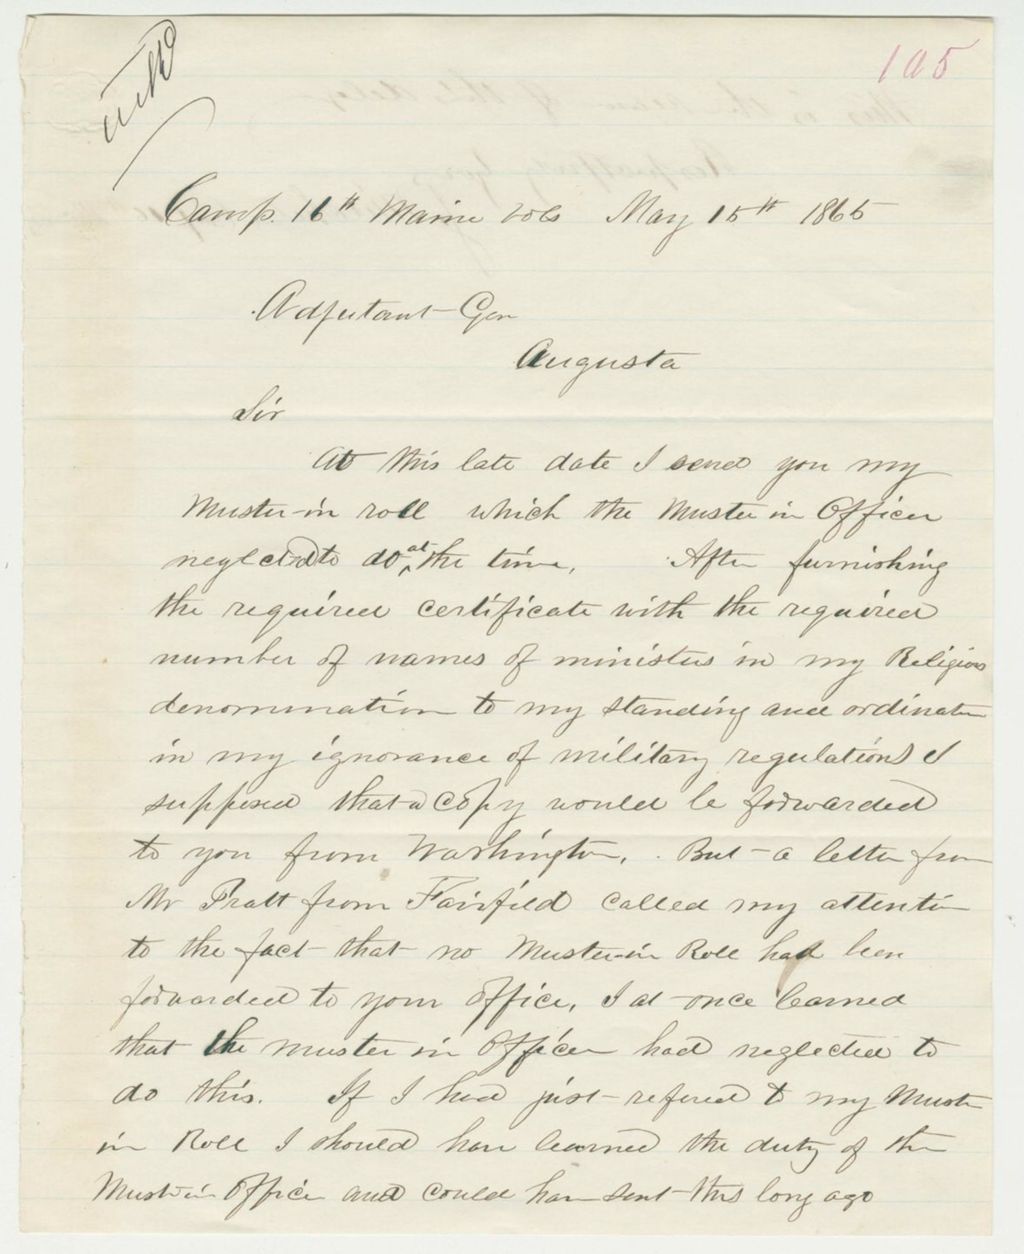 105
Camp. 16th Maine Vols May 15th 1865
Adjutant Gen
Augusta
Sir
At this late date I send you my
Muster-in roll which the Muster in Officer
neglected to do at the time. After furnishing
the required certificate with the required
number of names of ministers in my Religious
denomination to my standing and ordination
in my ignorance of military regulations I
supposed that a copy would be forwarded
to you from Washington. But a letter from
Mr Pratt from Fairfield called my attention
to the fact that no Muster-in Roll had been
forwarded to your Office, I at once learned
that the muster in Officer had neglected to
do this. If I had just refered to my Muster
in Roll I should have learned the duty of the
Muster in Officer and could have sent this long ago